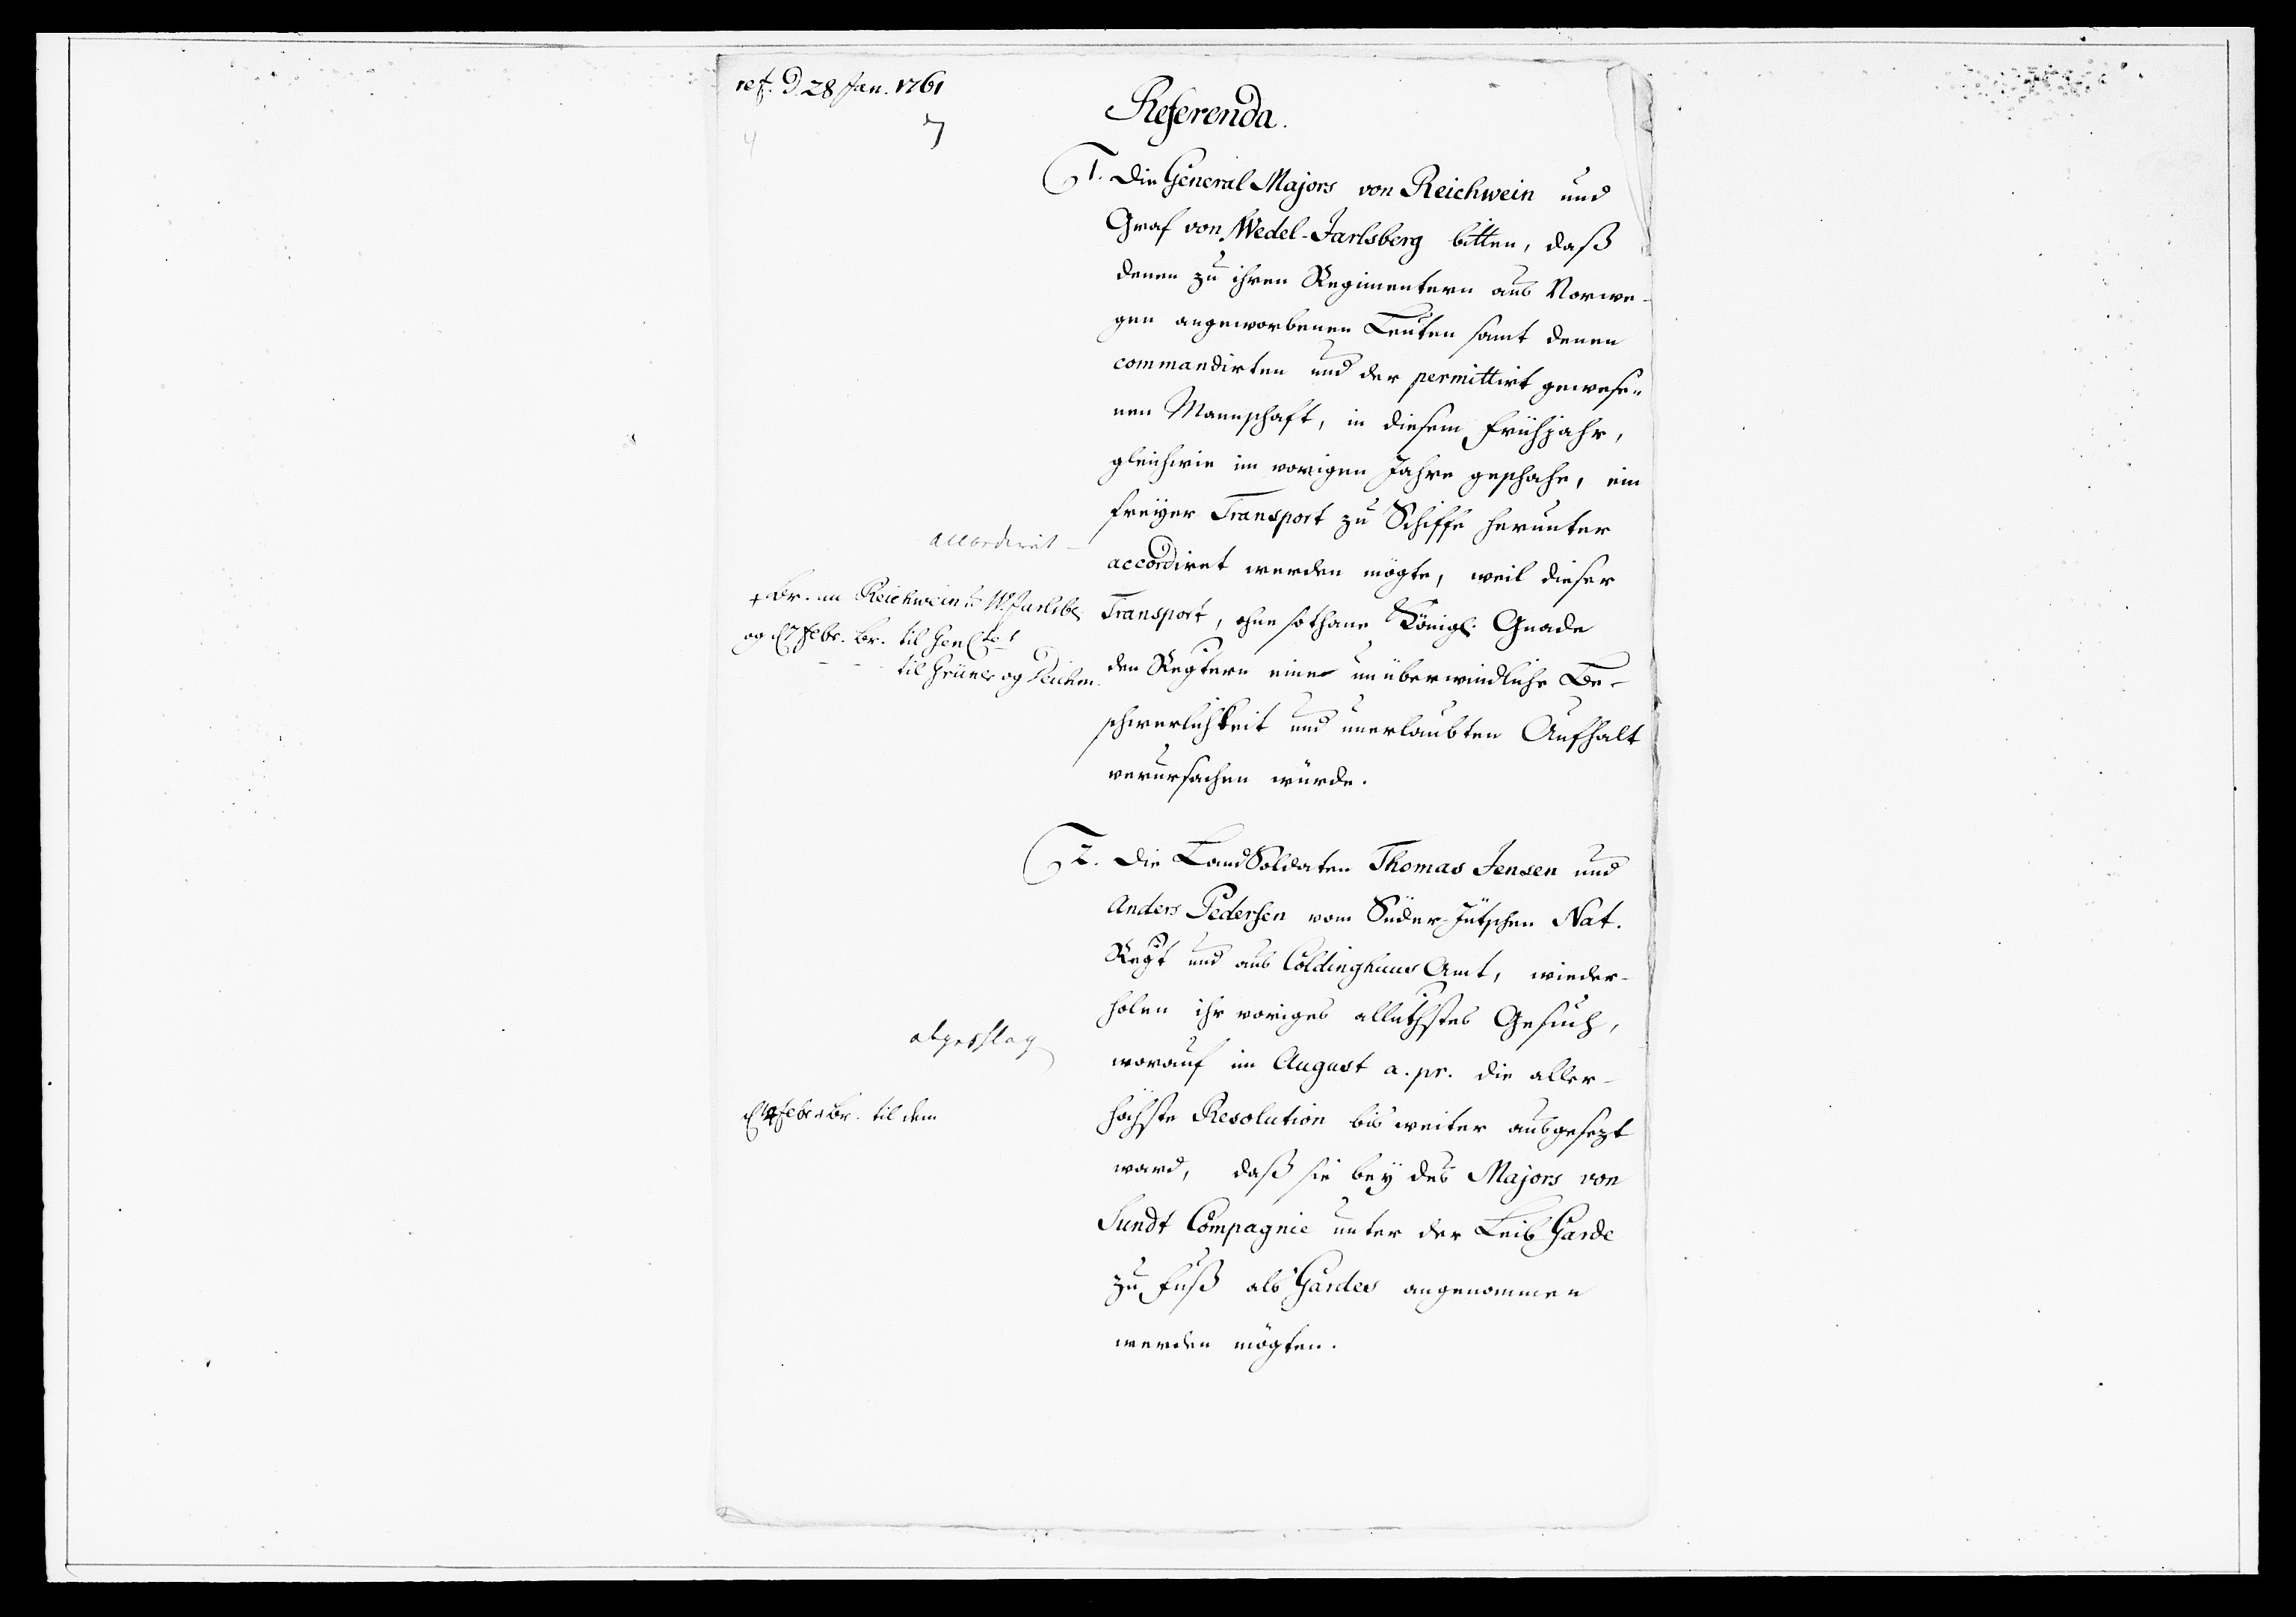 ref. d 28 Jan. 1761
7
4
Referenda.
1. Die General Majors von Reichwein und
Graf von Wedel-Jarlsberg bitten, daß
denen zu ihren Regimentern aus Norwe-
gen angeworbenen Leuten samt denen
commandirten und der permittirt gewese-
nen Mannschaft, in diesem Frühjahr,
gleichwie im vorigen Jahre geschahe, ein
freyer Transport zu Schiffe herunter
accordiret werden mögte, weil dieser
Transport, ohne sothane Königl. Gnade
den Regtern eine unüberwindliche Be-
schwerlichkeit und unerlaubten Aufhalt
verursachen würde.
accordiret
+ Br. an Reichwein u. W. Jarlsb.
og d 7 Febr. Br. til Gen
til Grüner og Deichm.
2. Die LandSoldaten Thomas Jensen und
Anders Pedersen vom Süder-Jütschen Nat.
Regt und aus Coldinghuus Amt, wieder-
holen ihr voriges alluthstes Gesuch,
worauf im August a. pr. die aller-
höchste Resolution bis weiter ausgesezt
ward, daß sie bey des Majors von
Sundt Compagnie unter der Leib Garde
zu Fuß als Gardes angenommen
werden mögten.
abgeschlag
Febr. Br. til dem